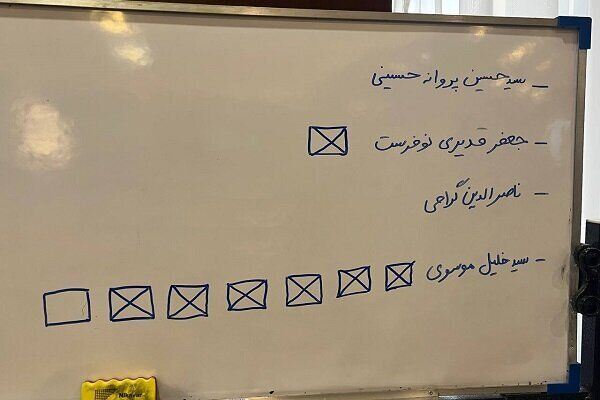 - سیدحسین پروانه حسینی
- جعفر قدیری نوفرست
- ناصرالدین گراحی
- سید خلیل موسوی